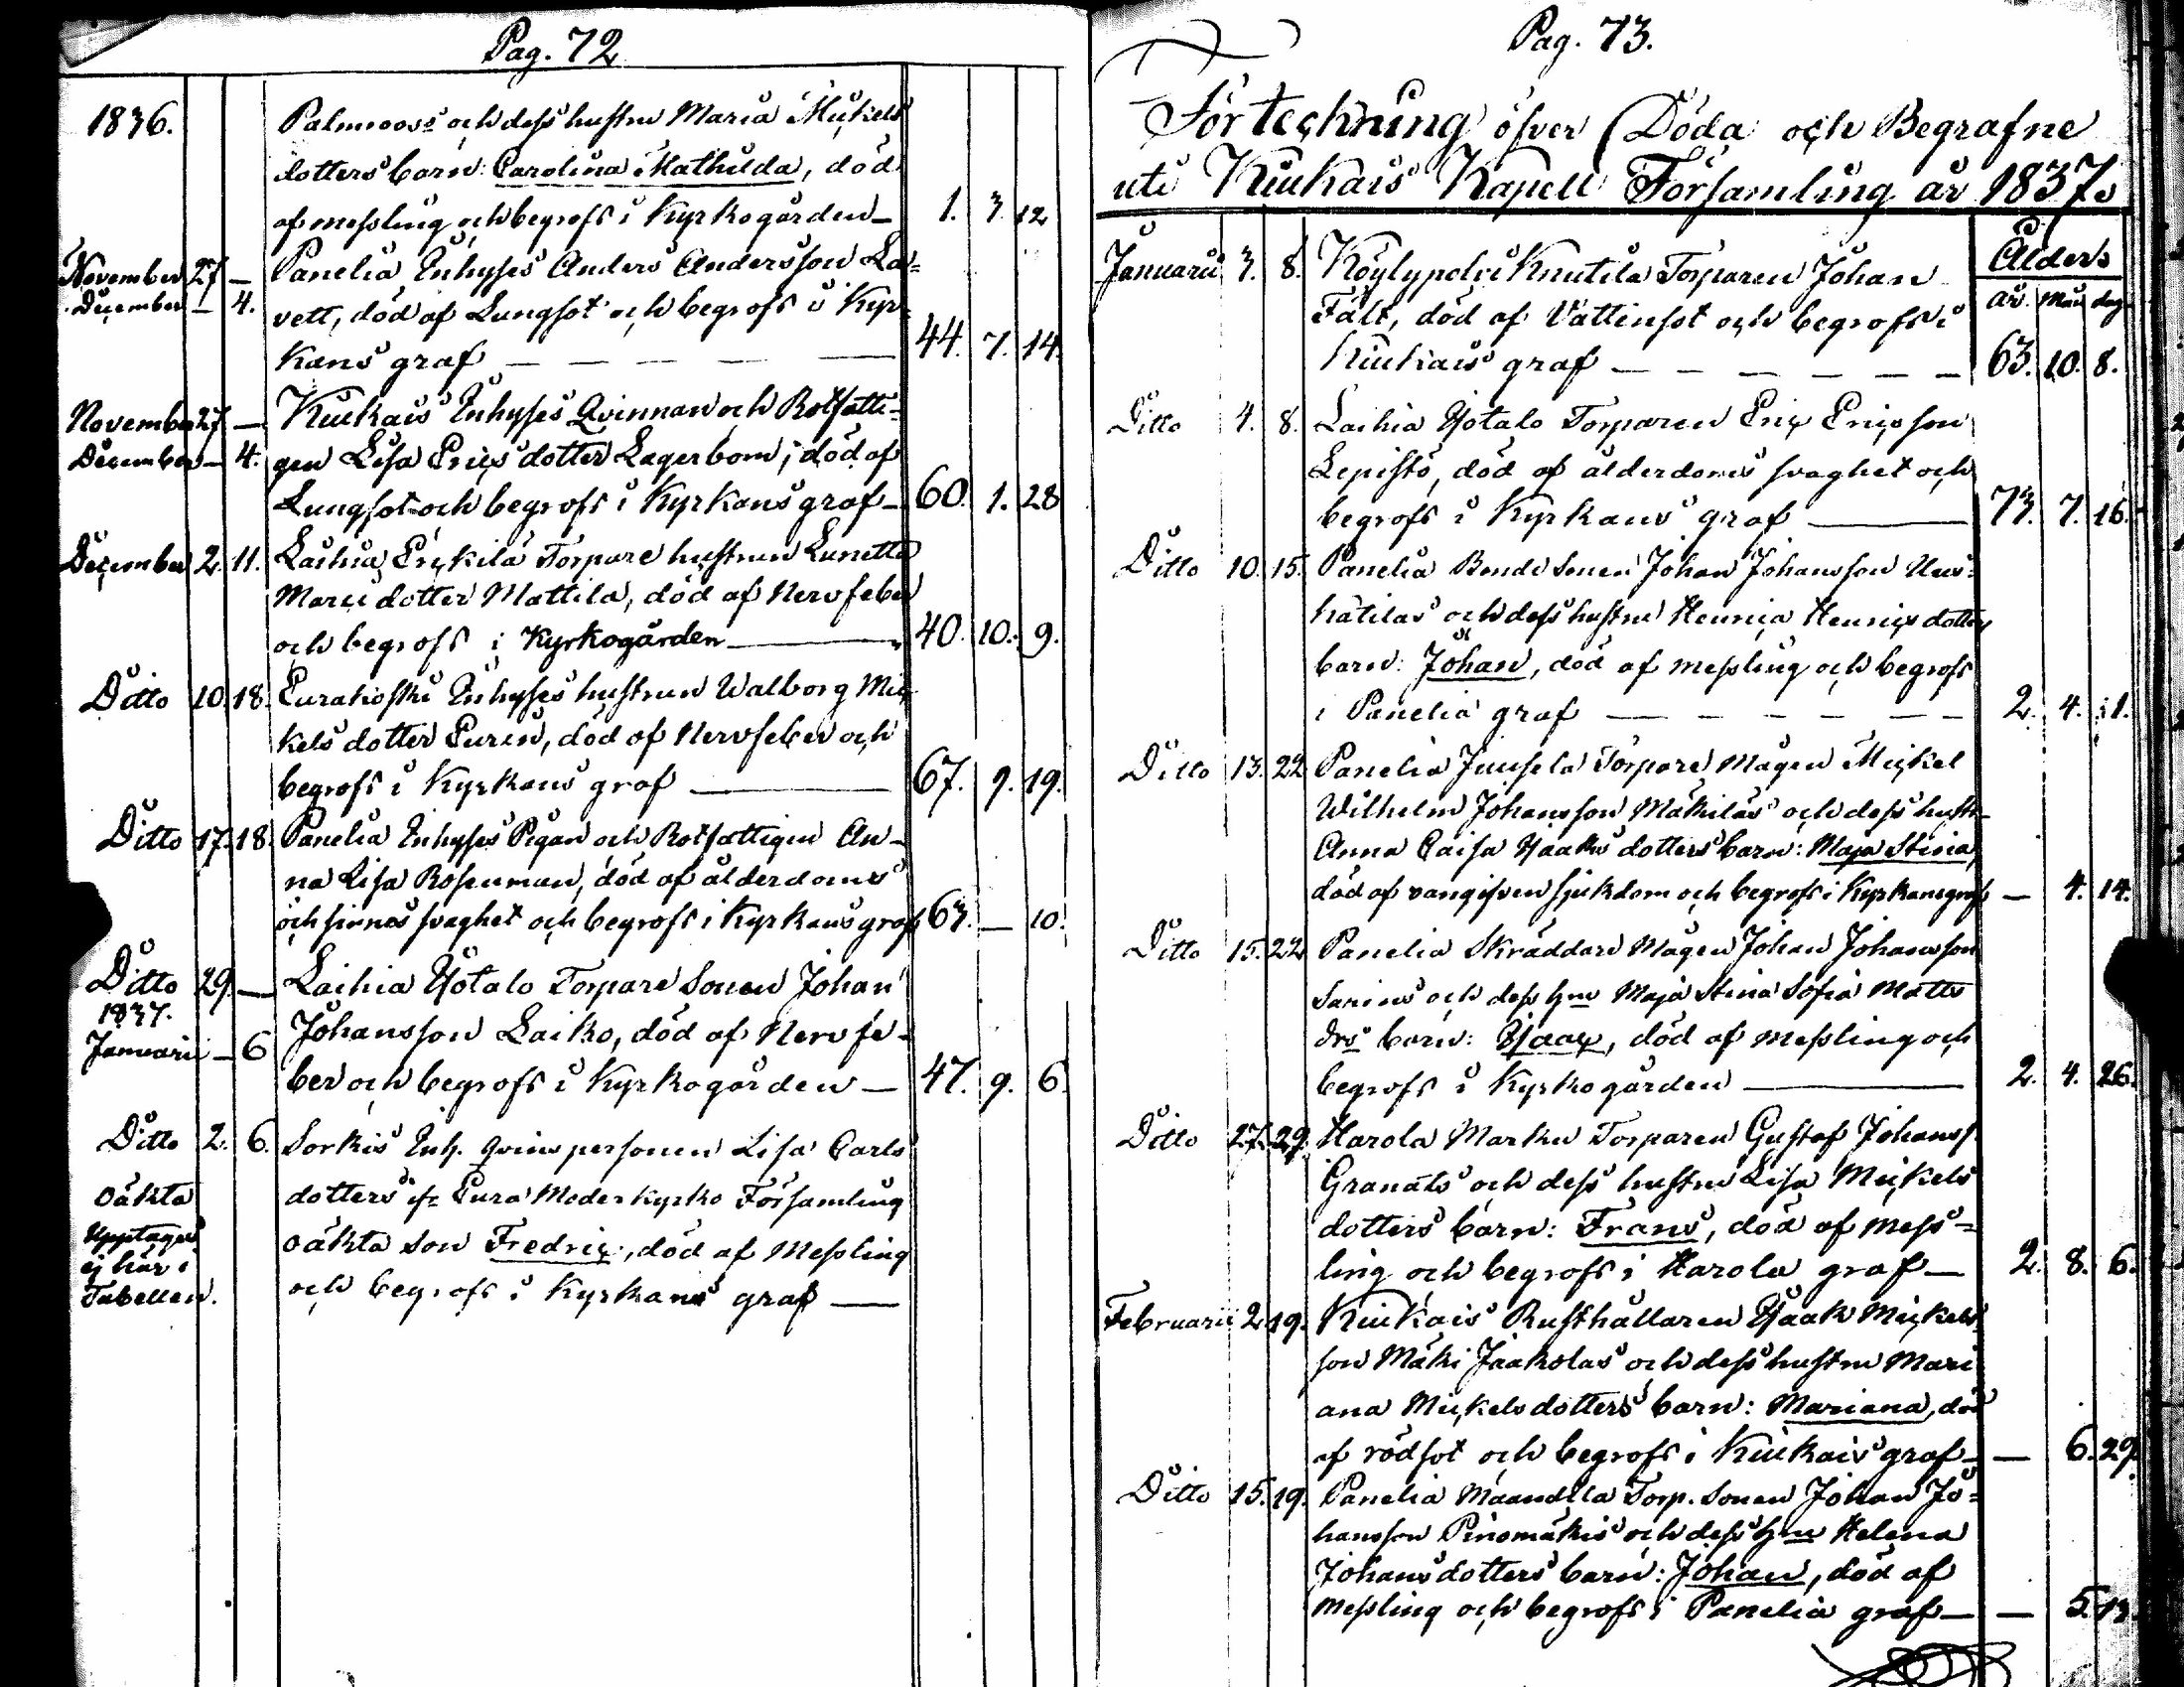 Pag. 72
1836.
Palmroos's och dess hustru Maria Mickels
dotters barn: Carolina Mathilda, död
af messling och begrofs i Kyrkogården — 1. 3. 12
November 27 — Panelia Inhyses Anders Andersson La=
December — 4. vett, död af Lungsot och begrofs i Kyr=
kans graf — — — — — 44. 7. 14.
November 27 — Kiukais Inhyses Qvinnan och Rotfatti=
December — 4. gen Lisa Erics dotter Lagerbom, död af
Lungsot och begrofs i Kyrkans graf — 60. 1. 28
December 2. 11. Laihia Erckilä Torpare hustrun Lunetta
Marci dotter Mattila, död af Nervfeber
och begrofs i Kyrkogården — 40. 10. 9.
Ditto 10. 18. Eurakoski Inhyses hustrun Walborg Mic
kels dotter Eurén, död af Nervfeber och
begrofs i Kyrkans graf — 67. 9. 19.
Ditto 17. 18. Panelia Inhyses Pigan och Rotfattigen An-
na Lisa Rosenman, död af ålderdoms
och sinnes svaghet och begrofs i Kyrkans graf 63. — 10.
Ditto 29. — Laihia Ylötalo Torpare Sonen Johan
1837.
Januari — 6 Johansson Laiko, död af Nervfe-
ber och begrofs i Kyrkogården — 47. 9. 6.
Ditto 2. 6. Sorkis Inh. Qvins personen Lisa Carls
oäkta dotters ifr Eura Moderkyrko Församling
Upptages oäkta son Fredric, död af Messling
ej här i och begrofs i Kyrkans graf —
Tabellen.
Pag. 73.
Förteckning öfver Döda och Begrafne
uti Kiukais Kapell Församling år 1837.
Ålder
år. mån dag.
Januarii 3. 8. Köylypolvi Knutila Torparen Johan
Fält, död af Vattusot och begrofs i
Kiukais graf — — — — — — 63. 10. 8.
Ditto 4. 8. Laihia Ylötalo Torparen Eric Ericsson
Lepistö, död af ålderdoms svaghet och
begrofs i Kyrkans graf — 73. 7. 16.
Ditto 10. 15. Panelia Bonde Sonen Johan Johansson Uus=
hätilas och dess hustru Henrica Henrics dotters
barn: Johan, död af messling och begrofs
i Panelia graf — — — — — — 2. 4. 11.
Ditto 13. 22 Panelia Juusela Torpare Mågen Mickel
Wilhelm Johansson Mäkiläs och dess hustr.
Anna Caisa Isaaks dotters barn: Maja Stina,
död af oangifven sjukdom och begrofs i Kyrkans graf — 4. 14.
Ditto 15. 22 Panelia Skräddare Mågen Johan Johansson
Sarins och dess hru Maja Stina Sofia Matts
drs barn: Isaac, död af messling och
begrofs i Kyrkogården — 2. 4. 26.
Ditto 27. 29. Harola Marku Torparen Gustaf Johanss.
Granats och dess hustru Lisa Mickels
dotters barn: Frans, död af mess=
ling och begrofs i Harola graf — 2. 8. 6.
Februarii 2. 19. Kiukais Rusthållaren Isaak Mickels
son Mäki Jaakolas och dess hustru Mari
ana Mickels dotters barn: Mariana, död
af rödsot och begrofs i Kiukais graf — — 6. 29.
Ditto 15. 19. Panelia Maandila Torp. Sonen Johan Jo=
hansson Pinomäkis och dess hru Helena
Johans dotters barn: Johan, död af
messling och begrofs i Panelia graf — — 5. 13.